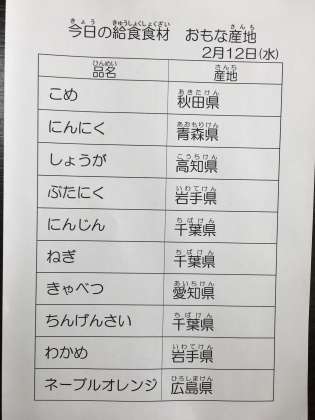 今日の給食食材 おもな産地
2月12日(水)
品名 産地
こめ 秋田県
にんにく 青森県
しょうが 高知県
ぶたにく 岩手県
にんじん 千葉県
ねぎ 千葉県
きゃべつ 愛知県
ちんげんさい 千葉県
わかめ 岩手県
ネーブルオレンジ 広島県